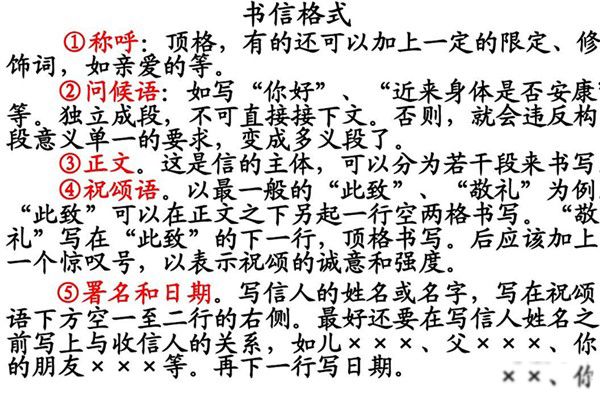 书信格式
①称呼：顶格，有的还可以加上一定的限定、修
饰词，如亲爱的等。
②问候语：如写“你好”、“近来身体是否安康”
等。独立成段，不可直接接下文。否则，就会违反构
段意义单一的要求，变成多义段了。
③正文。这是信的主体，可以分为若干段来书写
④祝颂语。以最一般的“此致”、“敬礼”为例
“此致”可以在正文之下另起一行空两格书写。“敬
礼”写在“此致”的下一行，顶格书写。后应该加上
一个惊叹号，以表示祝颂的诚意和强度。
⑤署名和日期。写信人的姓名或名字，写在祝颂
语下方空一至二行的右侧。最好还要在写信人姓名之
前写上与收信人的关系，如儿×××、父×××、你
的朋友×××等。再下一行写日期。
××、你